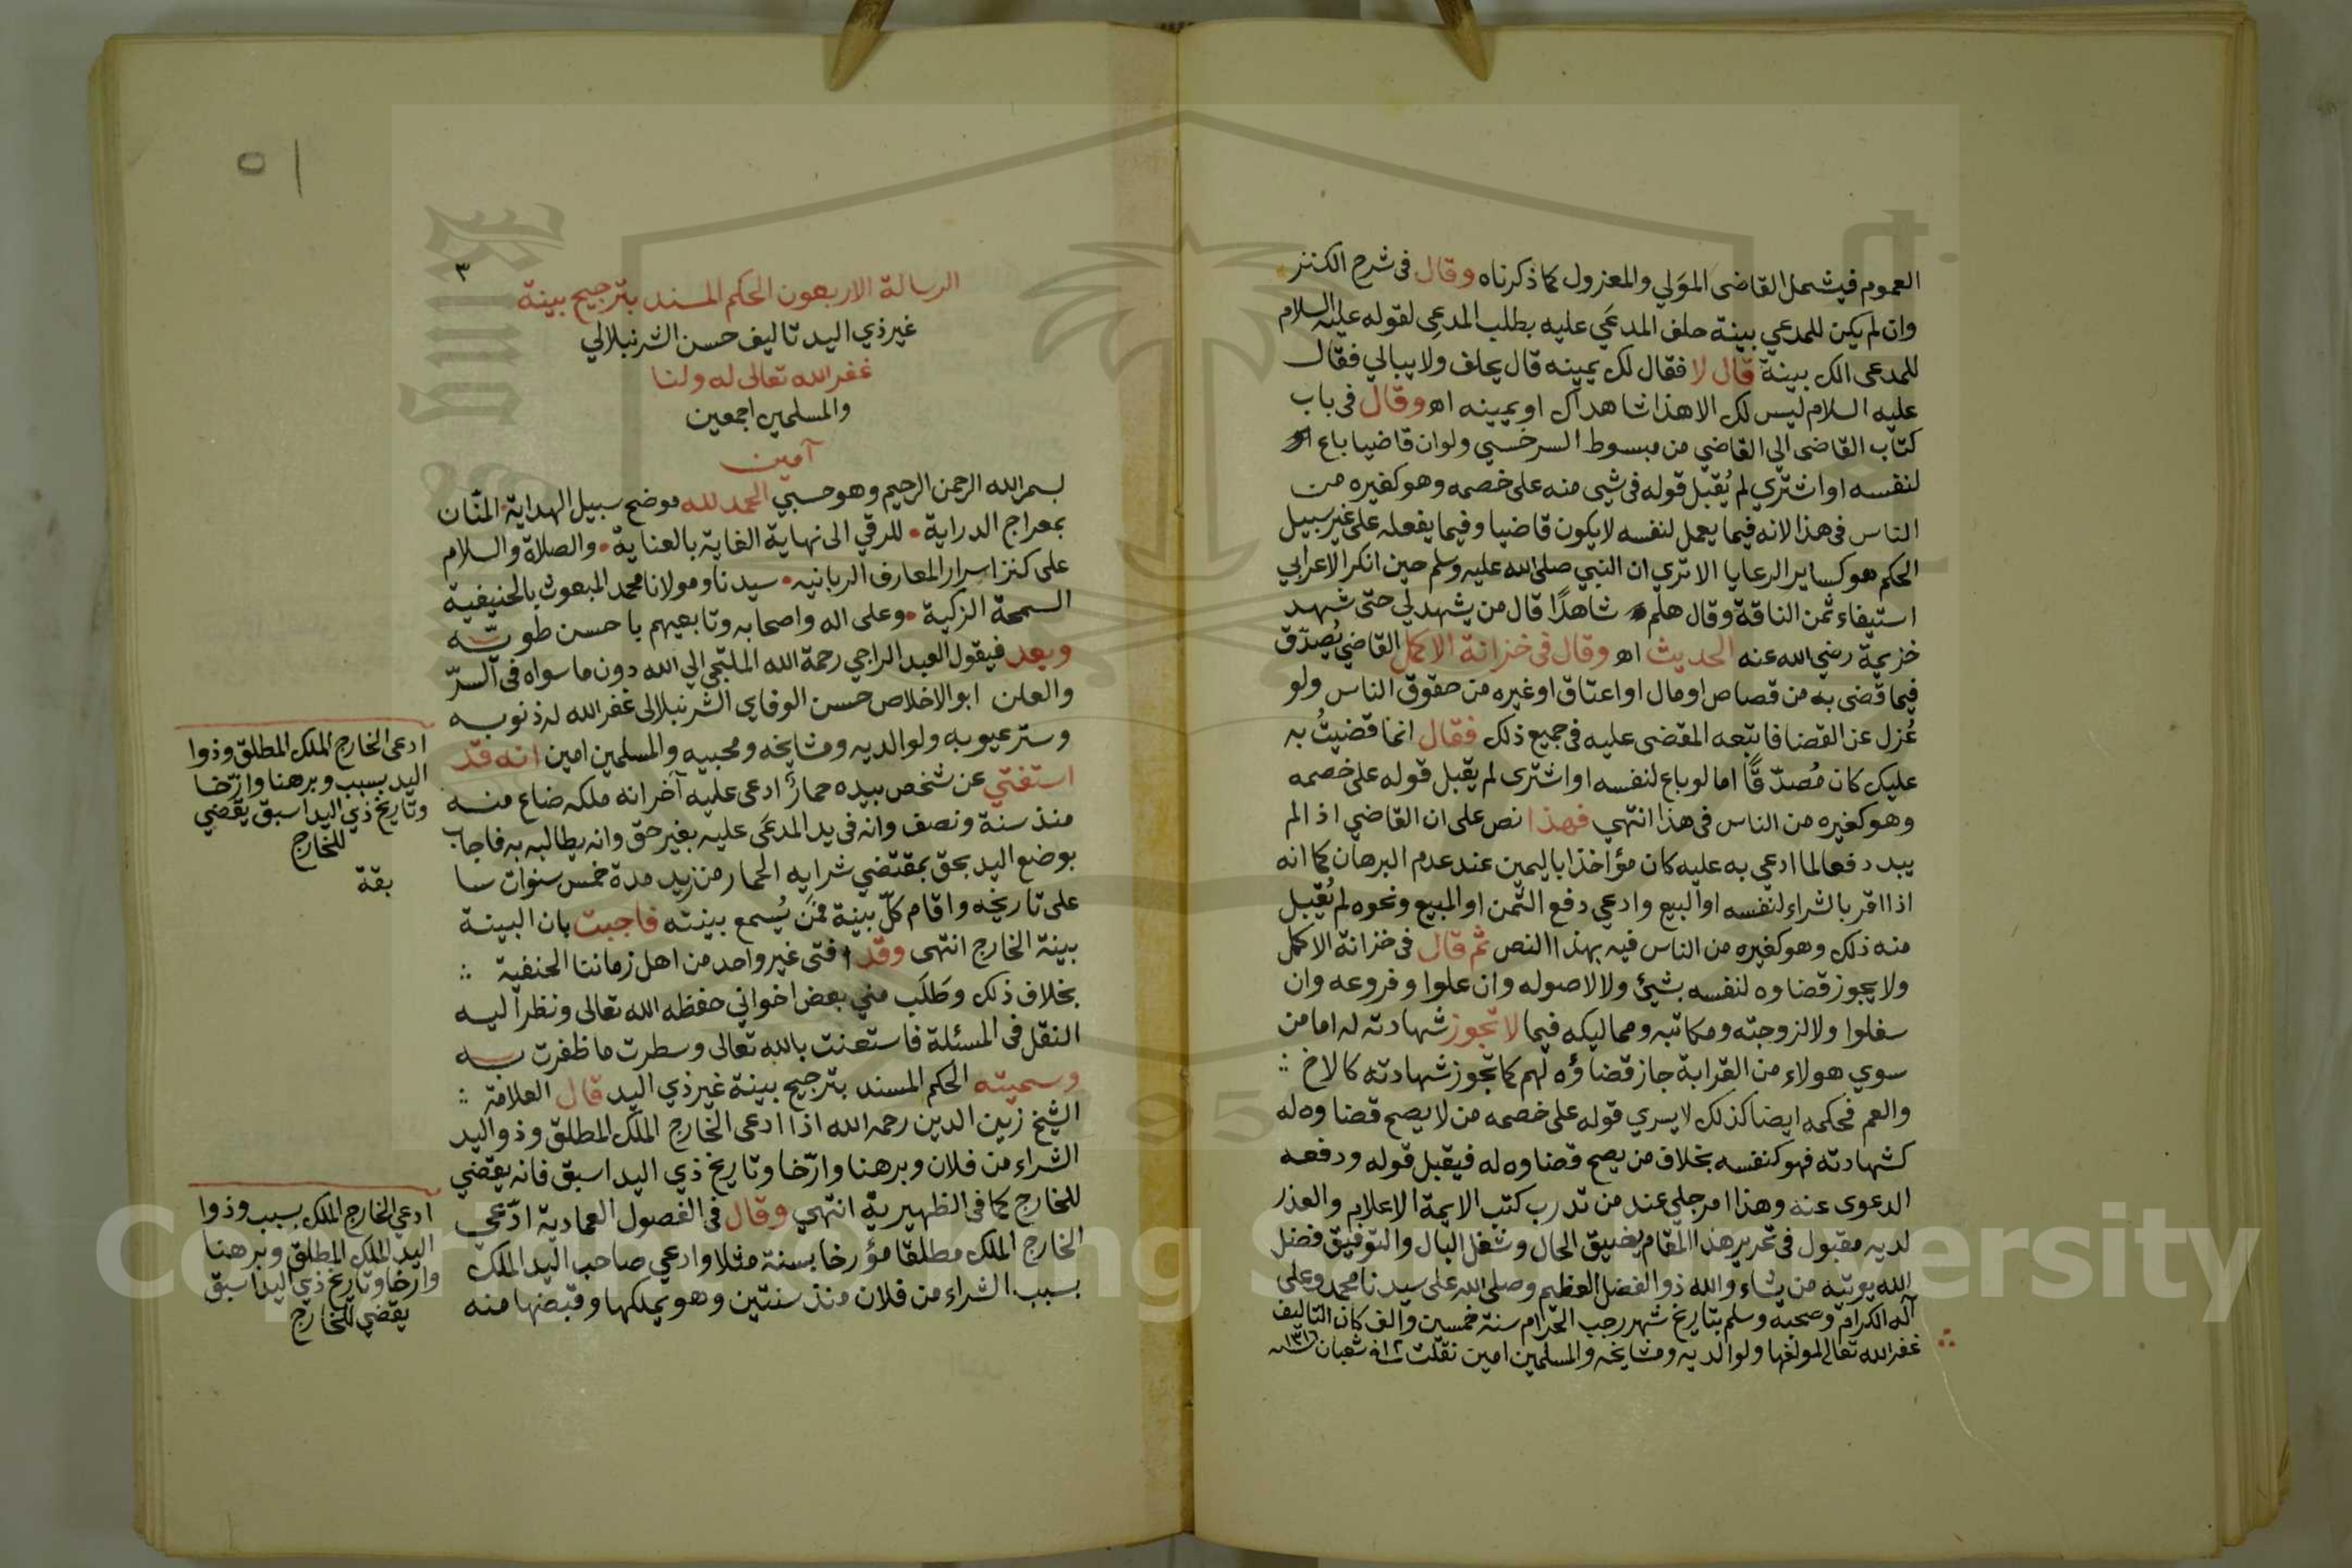 العموم فيشمل القاضى المولي والمعزول كما ذكرناه وقال فى شرح الكنز
وان لم يكن للمدعي بينة حلف المدعَي عليه بطلب المدعي لقوله عليه السلام
للمدعى الك بينة قال لا فقال لك يمينه قال يحلف ولا يبالي فقال
عليه السلام ليس لك الا هذا شاهداك او يمينه اه وقال فى باب
كتاب القاضى الي القاضي من مبسوط السرخسي ولوان قاضيا باع
لنفسه او اشتري لم يُقبل قوله فى شيى منه على خصمه وهو كغيره من
الناس فى هذا لانه فيما يعمل لنفسه لا يكون قاضيا وفيما يفعله على غير سبيل
الحكم هو كساير الرعايا الا تري ان النبي صلى الله عليه وسلم حين انكر الاعرابي
استيفاء ثمن الناقة وقال هلم شاهدًا قال من يشهد لي حتى شهد
خزيمة رضي الله عنه الحديث اه وقال فى خزانة الاكمل القاضي يُصدّق
فيما قضى به من قصاص او مال او اعتاق او غيره من حقوق الناس ولو
عُزل عن القضا فاتبعه المقضى عليه فى جميع ذلك فقال انما قضيتُ به
عليك كان مُصدّقًا اما لو باع لنفسه او اشترى لم يقبل قوله على خصمه
وهو كغيره من الناس فى هذا انتهي فهذا نص على ان القاضي اذا لم
يبد دفعا لما ادعي به عليه كان مؤاخذا باليمين عند عدم البرهان كما انه
اذا اقر بالشراء لنفسه او البيع وادعي دفع الثمن او المبيع ونحوه لم يُقبل
منه ذلك وهو كغيره من الناس فيه بهذا النص ثم قال فى خزانة الاكمل
ولا يجوز قضاوه لنفسه بشيئ ولا لاصوله وان علوا وفروعه وان
سفلوا ولا لزوجته ومكاتبه ومماليكه فيما لا تجوز شهادته له اما من
سوي هولاء من القرابة جاز قضاؤه لهم كما تجوز شهادته كالاخ
والعم فحكمه ايضا كذلك لا يسري قوله على خصمه من لا يصح قضاوه له
كشهادته فهو كنفسه بخلاف من يصح قضاوه له فيقبل قوله ودفعه
الدعوى عنه وهذا امر جلي عند من تدرب كتب الايمة الاعلام والعذر
لديه مقبول فى تحرير هذا المقام بضيق الحال وشغل البال والتوفيق فضل
الله يوتيه من يشاء والله ذو الفضل العظيم وصلى الله على سيدنا محمد وعلى
آله الكرام وصحبه وسلم بتاريخ شهر رجب الحرام سنة خمسين والف كان التاليف
غفر الله تعالى لمولفها ولوالديه ومشايخه والمسلمين امين نقلت شعبان
٣
٥١
الرسالة الاربعون الحكم المسند بترجيح بينة
غير ذي اليد تاليف حسن الشرنبلالي
غفر الله تعالى له ولنا
والمسلمين اجمعين
آمين
بسم الله الرحمن الرحيم وهو حسبي الحمد لله موضح سبيل الهداية المنّان
بمعراج الدراية • للرقي الى نهاية الغاية بالعناية • والصلاة والسلام
على كنز اسرار المعارف الربانيه • سيدنا ومولانا محمد المبعوث بالحنيفية
السمحة الزكية • وعلى اله واصحابه وتابعيهم باحسن طويّه
وبعد فيقول العبد الراجي رحمة الله الملتجي الي الله دون ما سواه فى السرّ
والعلن ابو الاخلاص حسن الوفاي الشرنبلالى غفر الله له ذنوبه
وستر عيوبه ولوالديه ومشايخه ومحبيه والمسلمين امين انه قد
استفتي عن شخص بيده حمارٌ ادعى عليه آخر انه ملكه ضاع منه
منذ سنة ونصف وانه فى يد المدعَي عليه بغير حق وانه يطالبه به فاجاب
بوضع اليد بحق بمقتضي شرايه الحمار من زيد مدة خمس سنوات سا
على تاريخه واقام كلّ بينة فمَن يُسمع بينته فاجبت بان البينة
بينة الخارج انتهى وقد افتى غير واحد من اهل زماننا الحنفية
بخلاف ذلك وطَلَب مني بعض اخواني حفظه الله تعالى ونظر اليه
النقل فى المسئلة فاستعنت بالله تعالى وسطرت ما ظفرت به
وسميته الحكم المسند بترجيح بينة غير ذي اليد قال العلامة
الشيخ زين الدين رحمه الله اذا ادعى الخارج الملك المطلق وذو اليد
الشراء من فلان وبرهنا وارّخا وتاريخ ذي اليد اسبق فانه يقضي
للخارج كما فى الظهيرية انتهي وقال فى الفصول العمادية ادّعي
الخارج الملك مطلقا مؤرخا بسنة مثلا وادعي صاحب اليد الملك
بسبب الشراء من فلان منذ سنتين وهو يملكها وقبضها منه
ادعى الخارج الملك المطلق وذوا
اليد بسبب وبرهنا وارّخا
وتاريخ ذي اليد اسبق يقضي
للخارج
بقة
ادعي الخارج الملك بسبب وذوا
اليد الملك المطلق وبرهنا
وارخا وتاريخ ذي اليد اسبق
يقضي للخارج